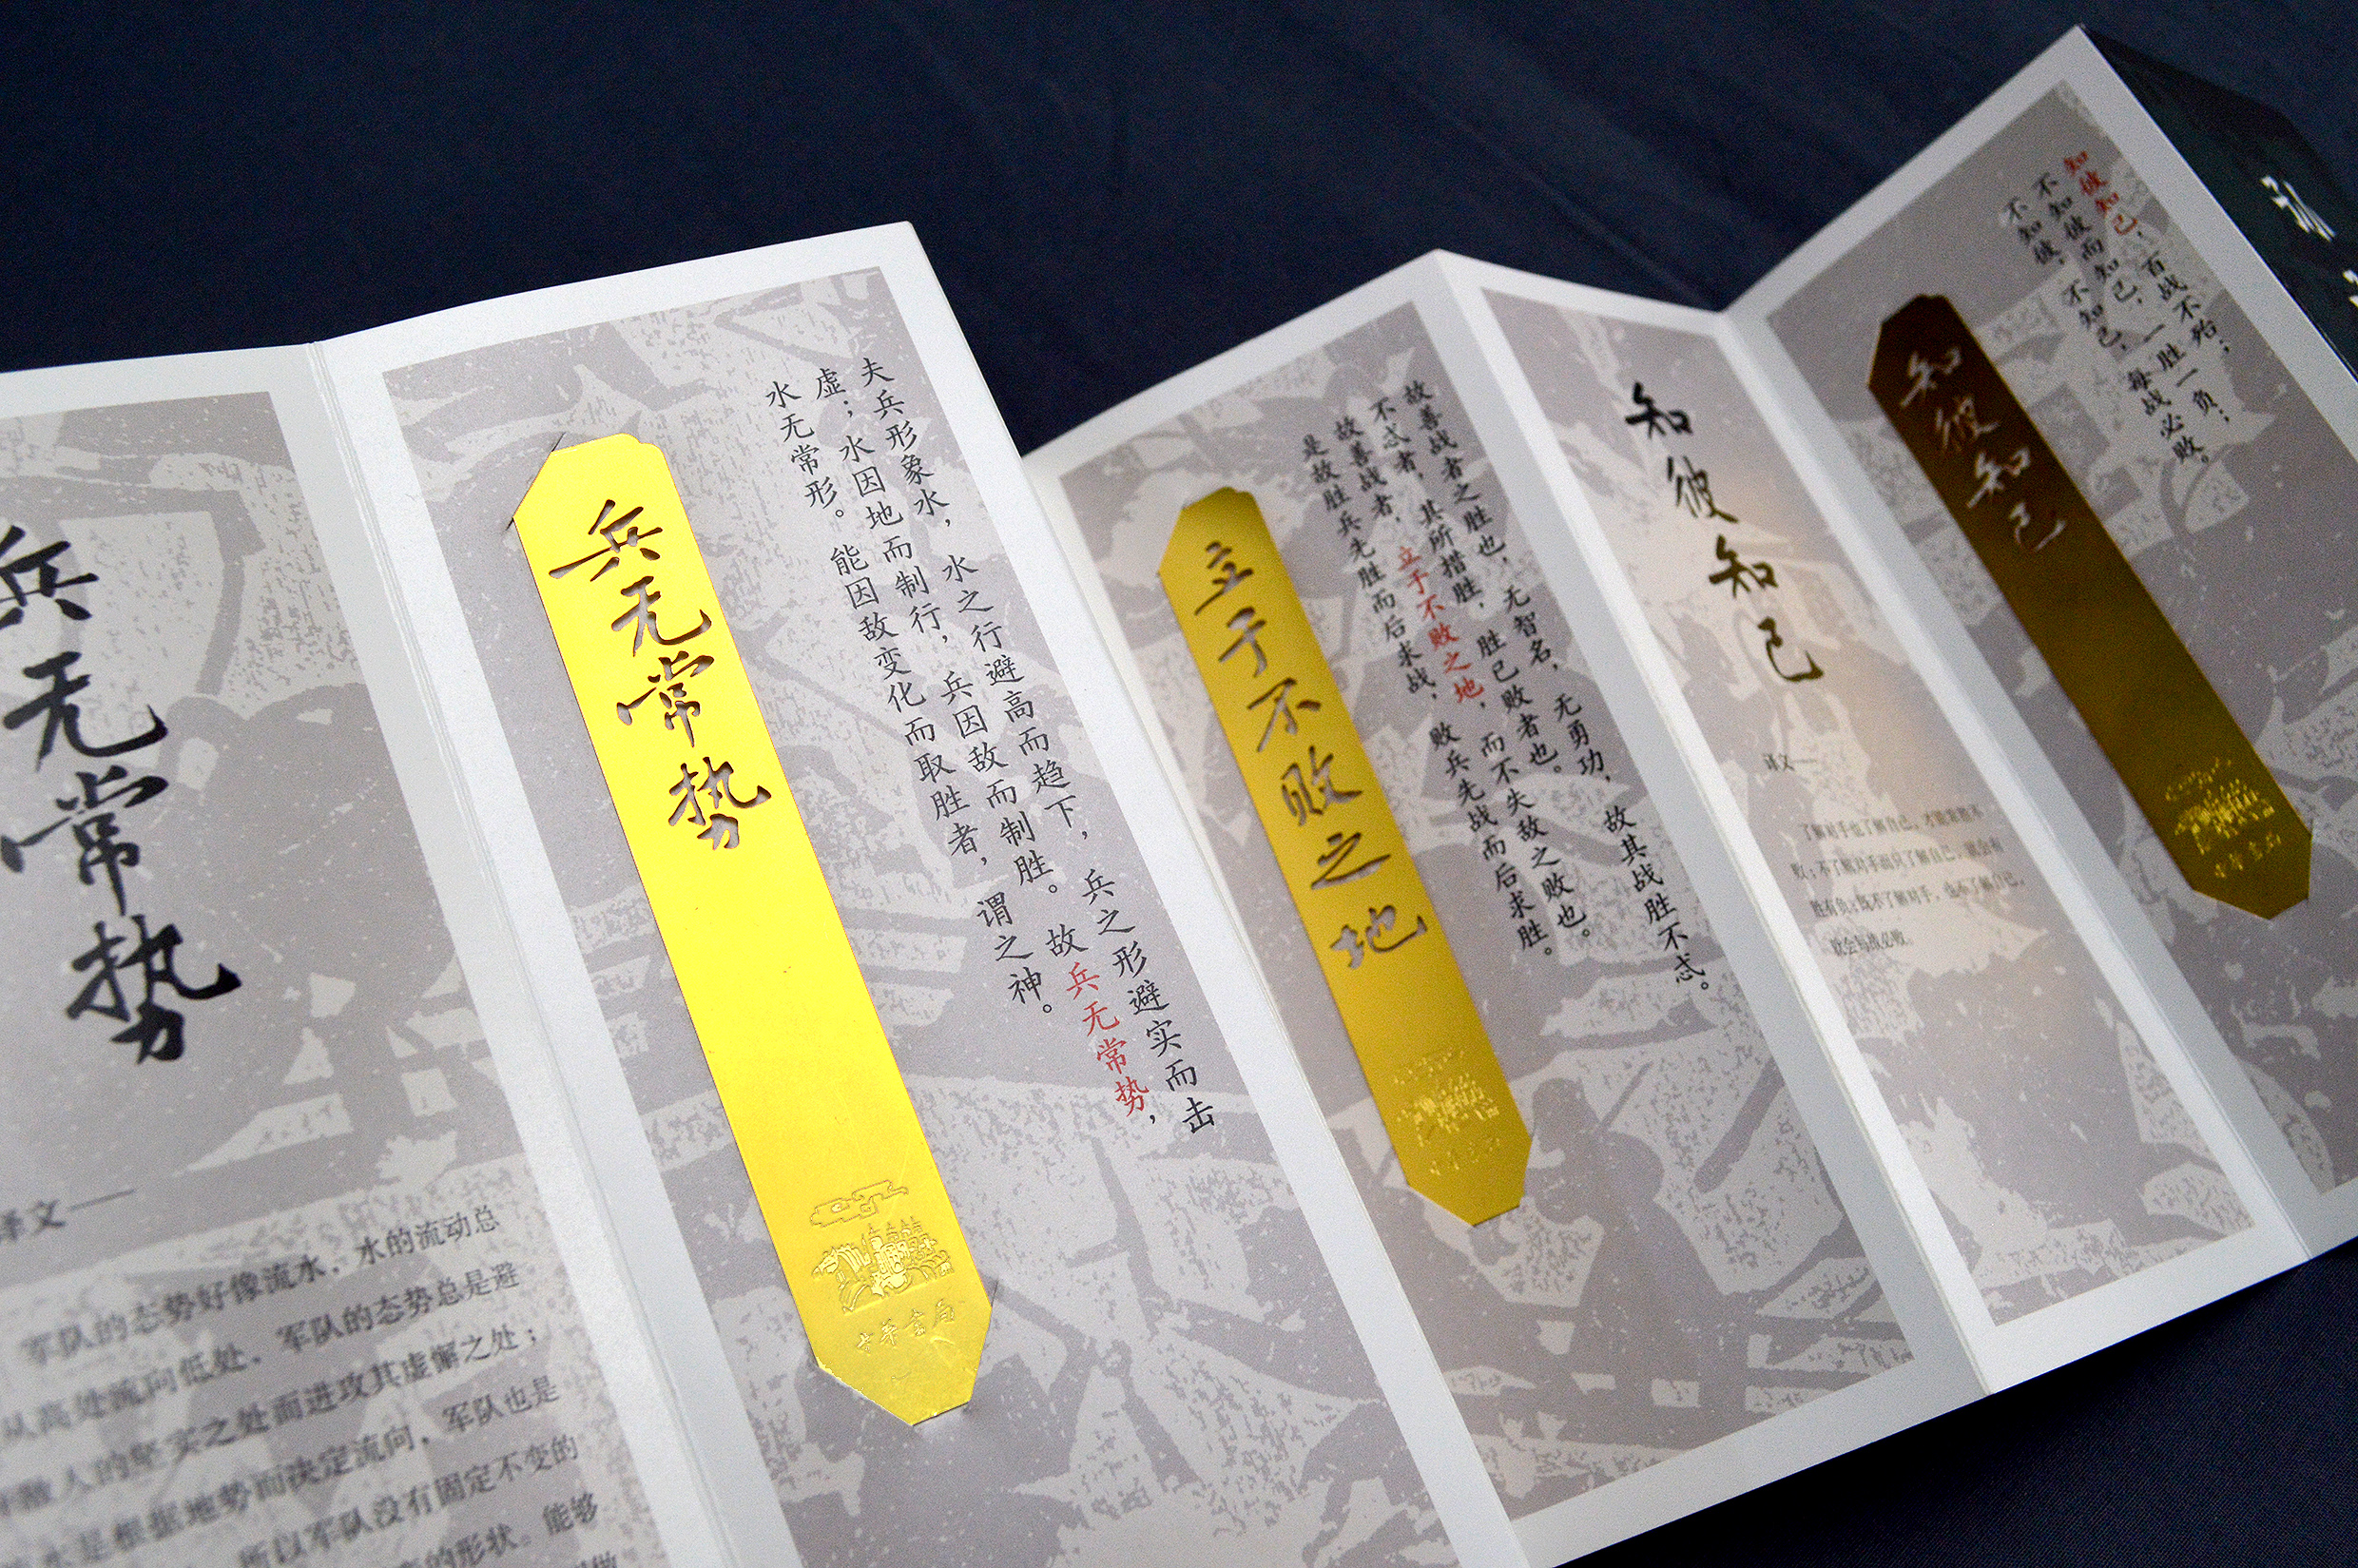 兵无常势
译文——
军队的态势好像流水，水的流动总
从高处流向低处，军队的态势总是避
敌人的坚实之处而进攻其虚懈之处；
水是根据地势而决定流向，军队也是
所以军队没有固定不变的
的形状。能够
兵无常势
中华书局
夫兵形象水，水之行避高而趋下，兵之形避实而击
虚；水因地而制行，兵因敌而制胜。故兵无常势，
水无常形。能因敌变化而取胜者，谓之神。
立于不败之地
中华书局
故善战者之胜也，无智名，无勇功，故其战胜不忒。
不忒者，其所措胜，胜已败者也。
故善战者，立于不败之地，而不失敌之败也。
是故胜兵先胜而后求战，败兵先战而后求胜。
知彼知己
译文——
了解对手也了解自己，才能百战不
败；不了解对手而只了解自己，就会有
胜有负；既不了解对手，也不了解自己，
就会每战必败。
知彼知己
中华书局
知彼知己，百战不殆；
不知彼而知己，一胜一负；
不知彼，不知己，每战必败。